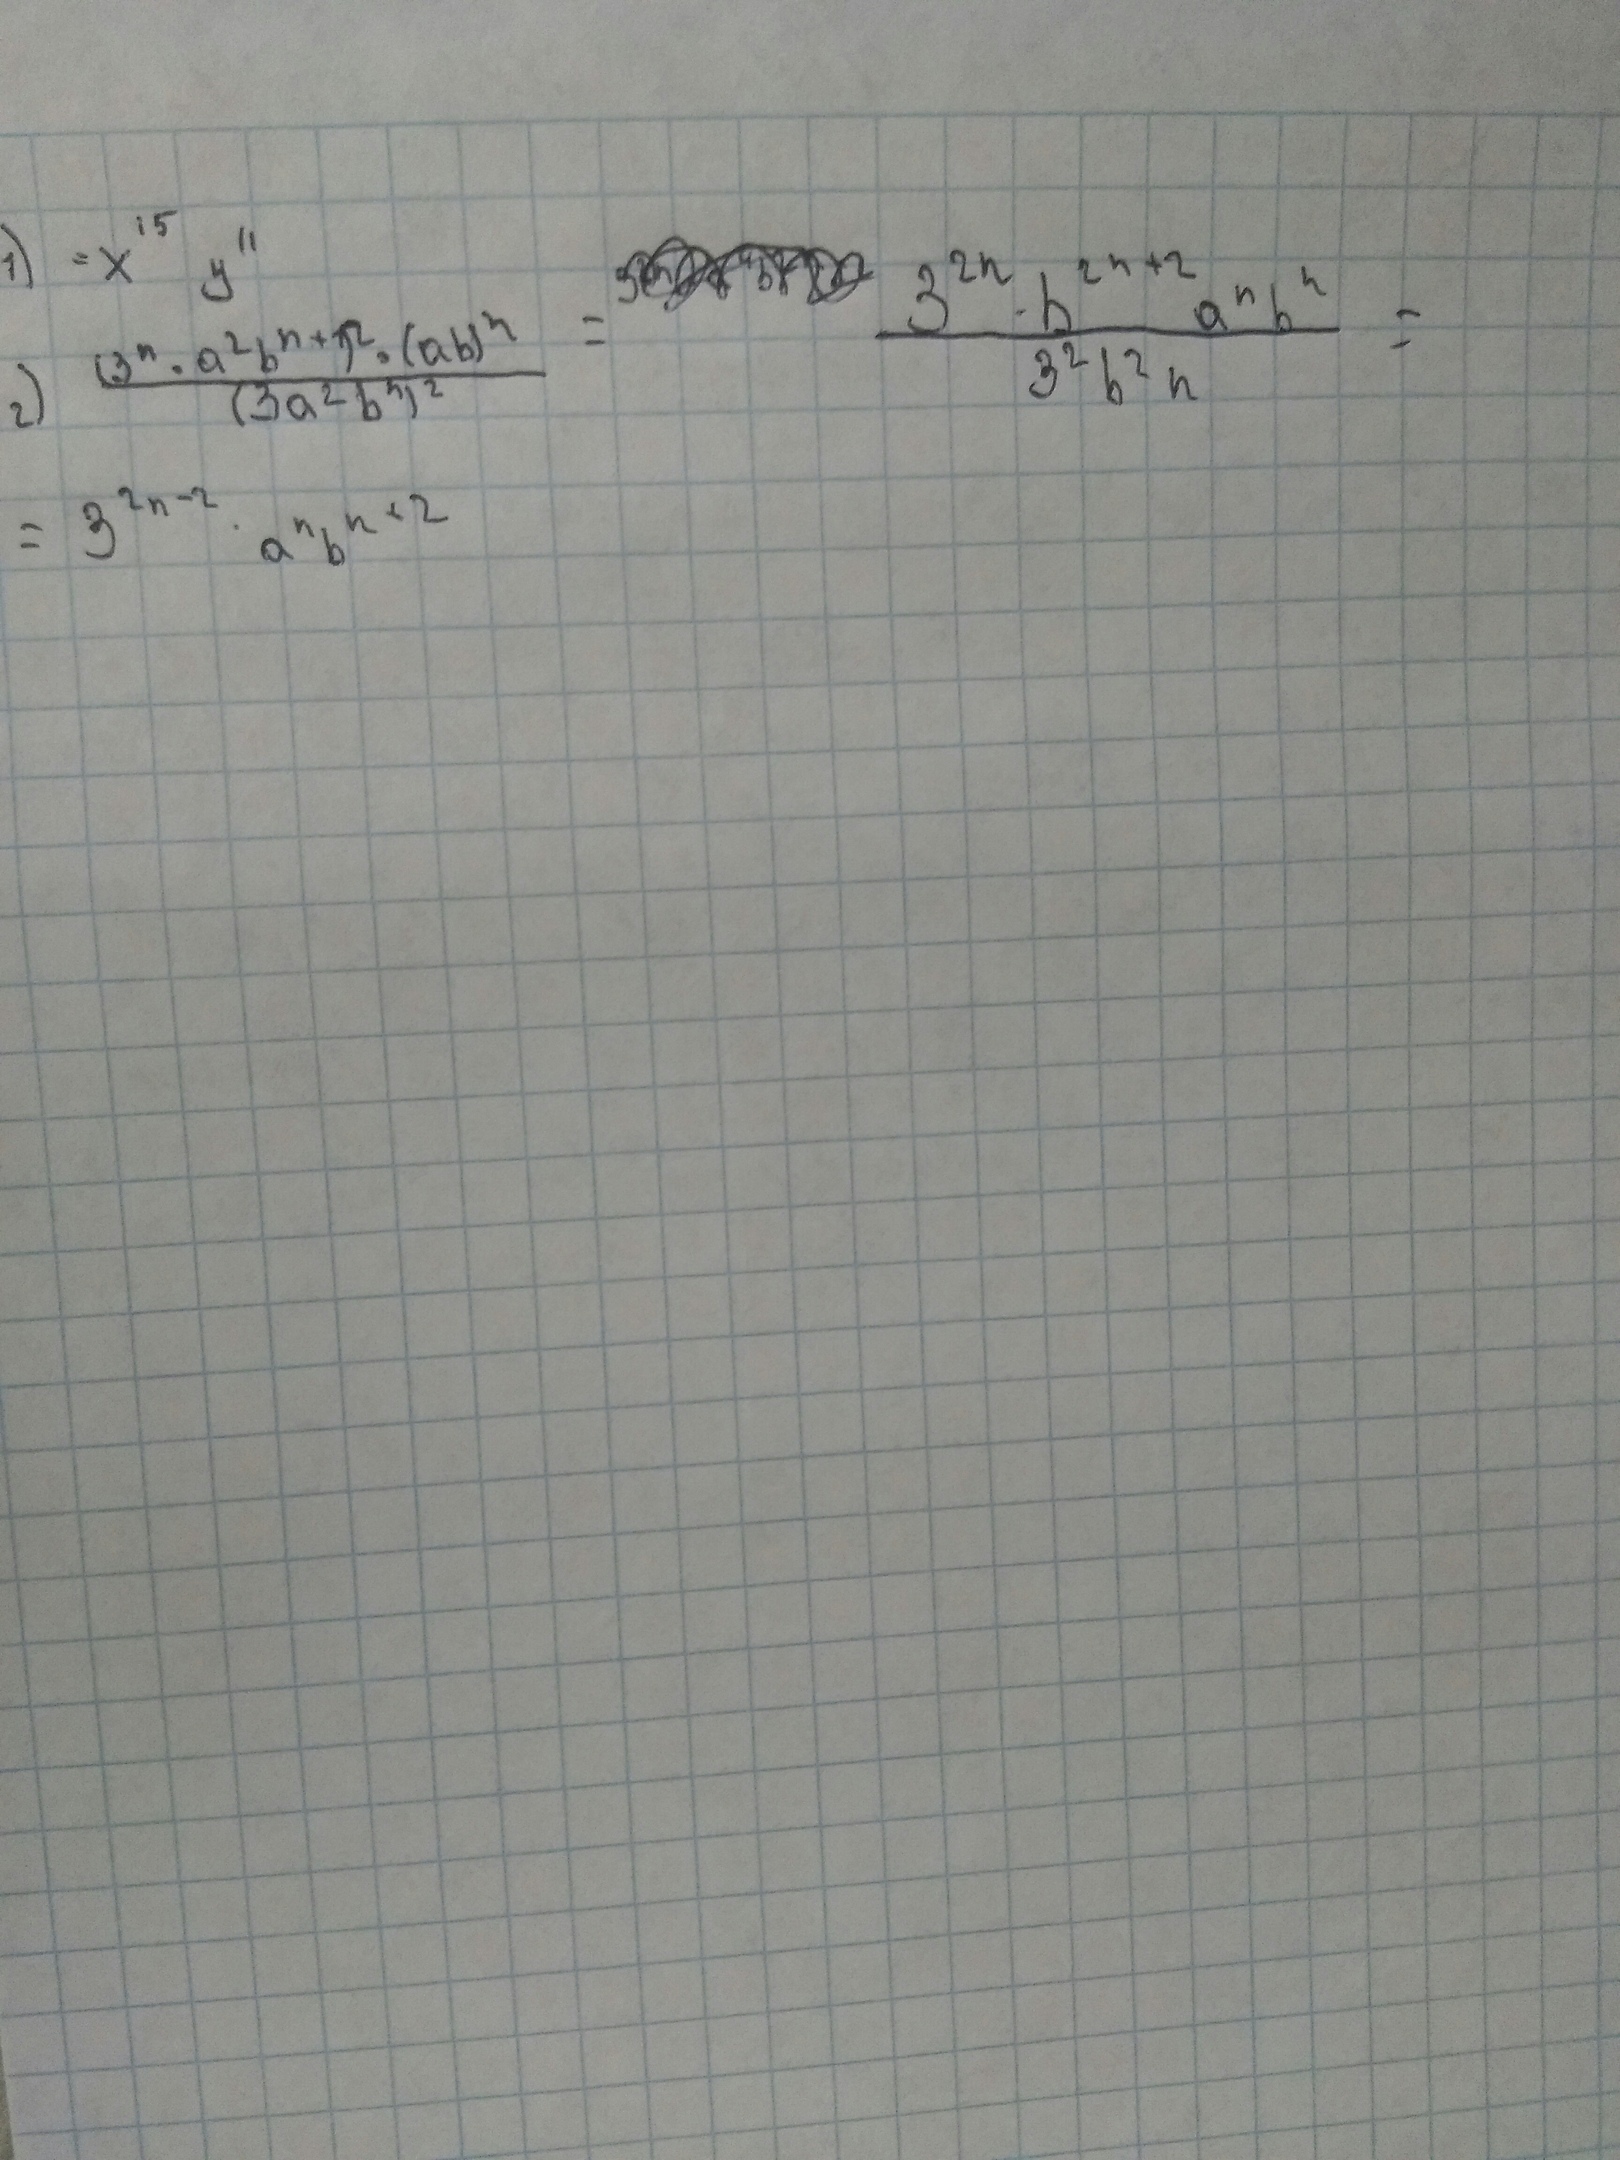 1) = x¹⁵ y¹¹
2) (3ⁿ · a²bⁿ⁺¹)² · (ab)ⁿ / (3a²bⁿ)² = 3²ⁿ · b²ⁿ⁺² aⁿbⁿ / 3²b²n =
= 3²ⁿ⁻² · aⁿbⁿ⁺²